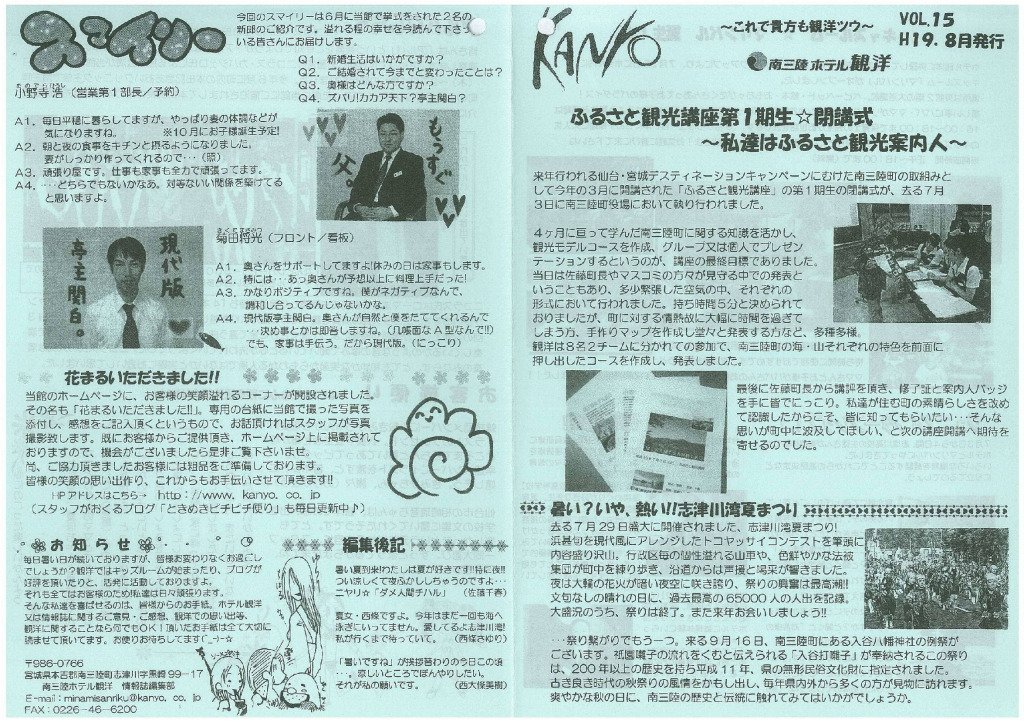 スマイリー
今回のスマイリーは6月に当館で挙式をされた2名の
新郎のご紹介です。溢れる程の幸せを今読んで下さっ
ている皆さんにお届けします。
Q1. 新婚生活はいかがですか?
Q2. ご結婚されて今までと変わったことは?
Q3. 奥様はどんな方ですか?
Q4. ズバリ!カカア天下?亭主関白?
小野寺浩(営業第1部長/予約)
A1. 毎日平穏に暮らしてますが、やっぱり妻の体調などが
気になりますね。 ※10月にお子様誕生予定!
A2. 朝と夜の食事をキチンと摂るようになりました。
妻がしっかり作ってくれるので・・(照)
A3. 頑張り屋です。仕事も家事も全力で頑張ってます。
A4. ・・・どちらでもないかなあ。対等ないい関係を築けてる
と思いますよ。
もうすぐ
父。
現代版
亭主関白。
菊田将光(フロント/看板)
A1. 奥さんをサポートしてますよ!休みの日は家事もします。
A2. 特には・・・あっ奥さんが予想以上に料理上手だった!
A3. かなりポジティブですね。僕がネガティブなんで、
調和し合ってるんじゃないかな。
A4. 現代版亭主関白。奥さんが自然と僕をたててくれるんで
・・・決め事とかは即答しますね。(几帳面なA型なんで!!)
でも、家事は手伝う。だから現代版。(にっこり)
花まるいただきました!!
当館のホームページに、お客様の笑顔溢れるコーナーが開設されました。
その名も「花まるいただきました!!」。専用の台紙に当館で撮った写真を
添付し、感想をご記入頂くというもので、お話頂ければスタッフが写真
撮影致します。既にお客様からご提供頂き、ホームページ上に掲載されて
おりますので、機会がございましたら是非ご覧下さいませ。
尚、ご協力頂きましたお客様には粗品をご準備しております。
皆様の笑顔の思い出作り、これからもお手伝いさせて頂きます!!
HPアドレスはこちら→ http://www.kanyo.co.jp
(スタッフがおくるブログ「ときめきピチピチ便り」も毎日更新中♪)
お知らせ
毎日暑い日が続いておりますが、皆様お変わりなくお過ごし
でしょうか?観洋ではキッズルームが始まったり、ブログが
好評を頂いたりと、活発に活動しておりますよ。
それも全てはお客様のため!私達は日々頑張ります。
そんな私達を喜ばせるのは、皆様からのお手紙。ホテル観洋
又は情報誌に関するご意見・ご感想、観洋での思い出等、
観洋に関することなら何でもOK!頂いたお手紙は全て大切に
読ませて頂いてます。お便りお待ちしてます(^_-)-☆
〒986-0766
宮城県本吉郡南三陸町志津川字黒崎99-17
南三陸ホテル観洋 情報誌編集部
E-mail:minamisanriku@kanyo.co.jp
FAX:0226-46-6200
編集後記
暑い夏到来!わたしは夏が好きです!!特に夜!!
つい涼しくて夜ふかししちゃうのですよ・・・
ニヤリ☆「ダメ人間チハル」 (佐藤千春)
真女・西條ですよ。今年はまだ一回も海へ
泳ぎにいってません。愛してるよ志津川湾!
私が行くまで待っていて。 (西條さゆり)
「暑いですね」が挨拶替わりの今日この頃
・・・。涼しいところでぼんやりしたい。
それが私の願いです。 (西大條美樹)
KANYO
~これで貴方も観洋ツウ~
VOL.15
H19.8月発行
南三陸ホテル観洋
ふるさと観光講座第1期生☆閉講式
~私達はふるさと観光案内人~
来年行われる仙台・宮城デスティネーションキャンペーンにむけた南三陸町の取組みと
して今年の3月に開講された「ふるさと観光講座」の第1期生の閉講式が、去る7月
3日に南三陸町役場において執り行われました。
4ヶ月に亘って学んだ南三陸町に関する知識を活かし、
観光モデルコースを作成、グループ又は個人でプレゼン
テーションするというのが、講座の最終目標でありました。
当日は佐藤町長やマスコミの方々が見守る中での発表と
いうこともあり、多少緊張した空気の中、それぞれの
形式において行われました。持ち時間5分と決められて
おりましたが、町に対する情熱故に大幅に時間を過ぎて
しまう方、手作りマップを作成し堂々と発表する方など、多種多様。
観洋は8名2チームに分かれての参加で、南三陸町の海・山それぞれの特色を前面に
押し出したコースを作成し、発表しました。
最後に佐藤町長から講評を頂き、修了証と案内人バッジ
を手に皆でにっこり。私達が住む町の素晴らしさを改め
て認識したからこそ、皆に知ってもらいたい・・・そんな
思いが町中に波及してほしい、と次の講座開講へ期待を
寄せるのでした。
暑い?いや、熱い!!志津川湾夏まつり
去る7月29日盛大に開催されました、志津川湾夏まつり!
浜甚句を現代風にアレンジしたトコヤッサイコンテストを筆頭に
内容盛り沢山。行政区毎の個性溢れる山車や、色鮮やかな法被
集団が町中を練り歩き、沿道からは声援と喝采が響きました。
夜は大輪の花火が暗い夜空に咲き誇り、祭りの興奮は最高潮!!
文句なしの晴れの日に、過去最高の65000人の人出を記録。
大盛況のうち、祭りは終了。また来年お会いしましょう!!
・・・祭り繋がりでもう一つ。来る9月16日、南三陸町にある入谷八幡神社の例祭が
ございます。祇園囃子の流れをくむと伝えられる「入谷打囃子」が奉納されるこの祭り
は、200年以上の歴史を持ち平成11年、県の無形民俗文化財に指定されました。
古き良き時代の秋祭りの風情をかもし出し、毎年県内外から多くの方が見物に訪れます。
爽やかな秋の日に、南三陸の歴史と伝統に触れてみてはいかがでしょうか。